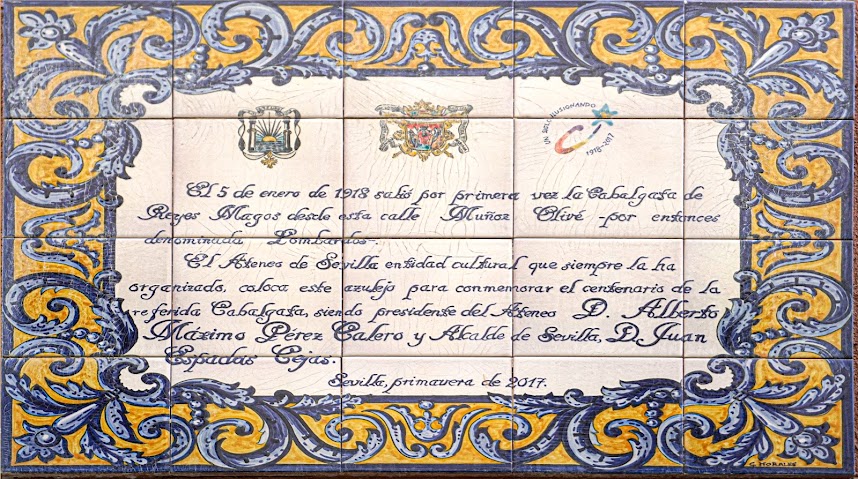 UN SIGLO ILUSIONANDO
1918-2017
El 5 de enero de 1918 salió por primera vez la Cabalgata de
Reyes Magos desde esta calle Muñoz Olivé -por entonces
denominada Lombardos-.
El Ateneo de Sevilla entidad cultural que siempre la ha
organizado, coloca este azulejo para conmemorar el centenario de la
referida Cabalgata, siendo presidente del Ateneo D. Alberto
Máximo Pérez Calero y Alcalde de Sevilla, D. Juan
Espadas Cejas.
Sevilla, primavera de 2017.
G. MORALES